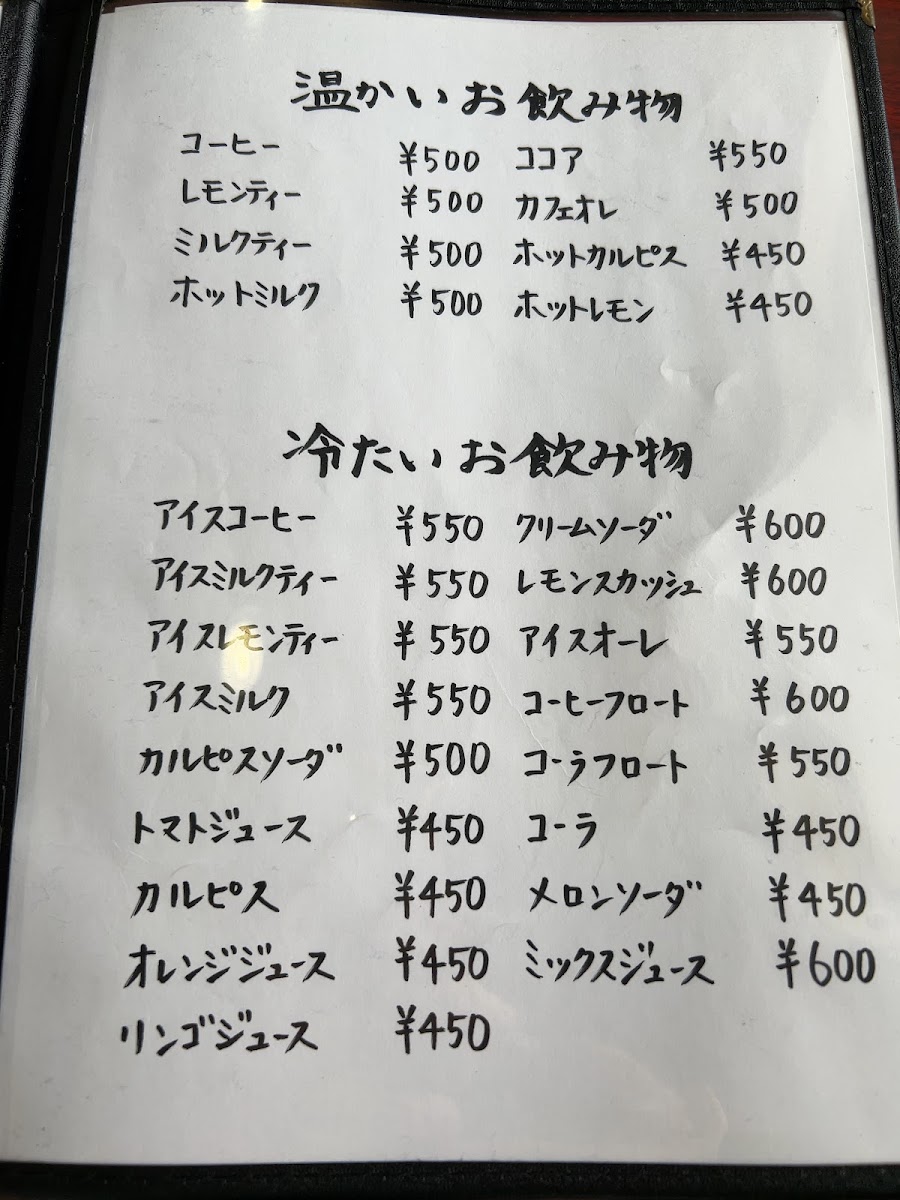 温かいお飲み物
コーヒー ¥500 ココア ¥550
レモンティー ¥500 カフェオレ ¥500
ミルクティー ¥500 ホットカルピス ¥450
ホットミルク ¥500 ホットレモン ¥450
冷たいお飲み物
アイスコーヒー ¥550 クリームソーダ ¥600
アイスミルクティー ¥550 レモンスカッシュ ¥600
アイスレモンティー ¥550 アイスオーレ ¥550
アイスミルク ¥550 コーヒーフロート ¥600
カルピスソーダ ¥500 コーラフロート ¥550
トマトジュース ¥450 コーラ ¥450
カルピス ¥450 メロンソーダ ¥450
オレンジジュース ¥450 ミックスジュース ¥600
リンゴジュース ¥450